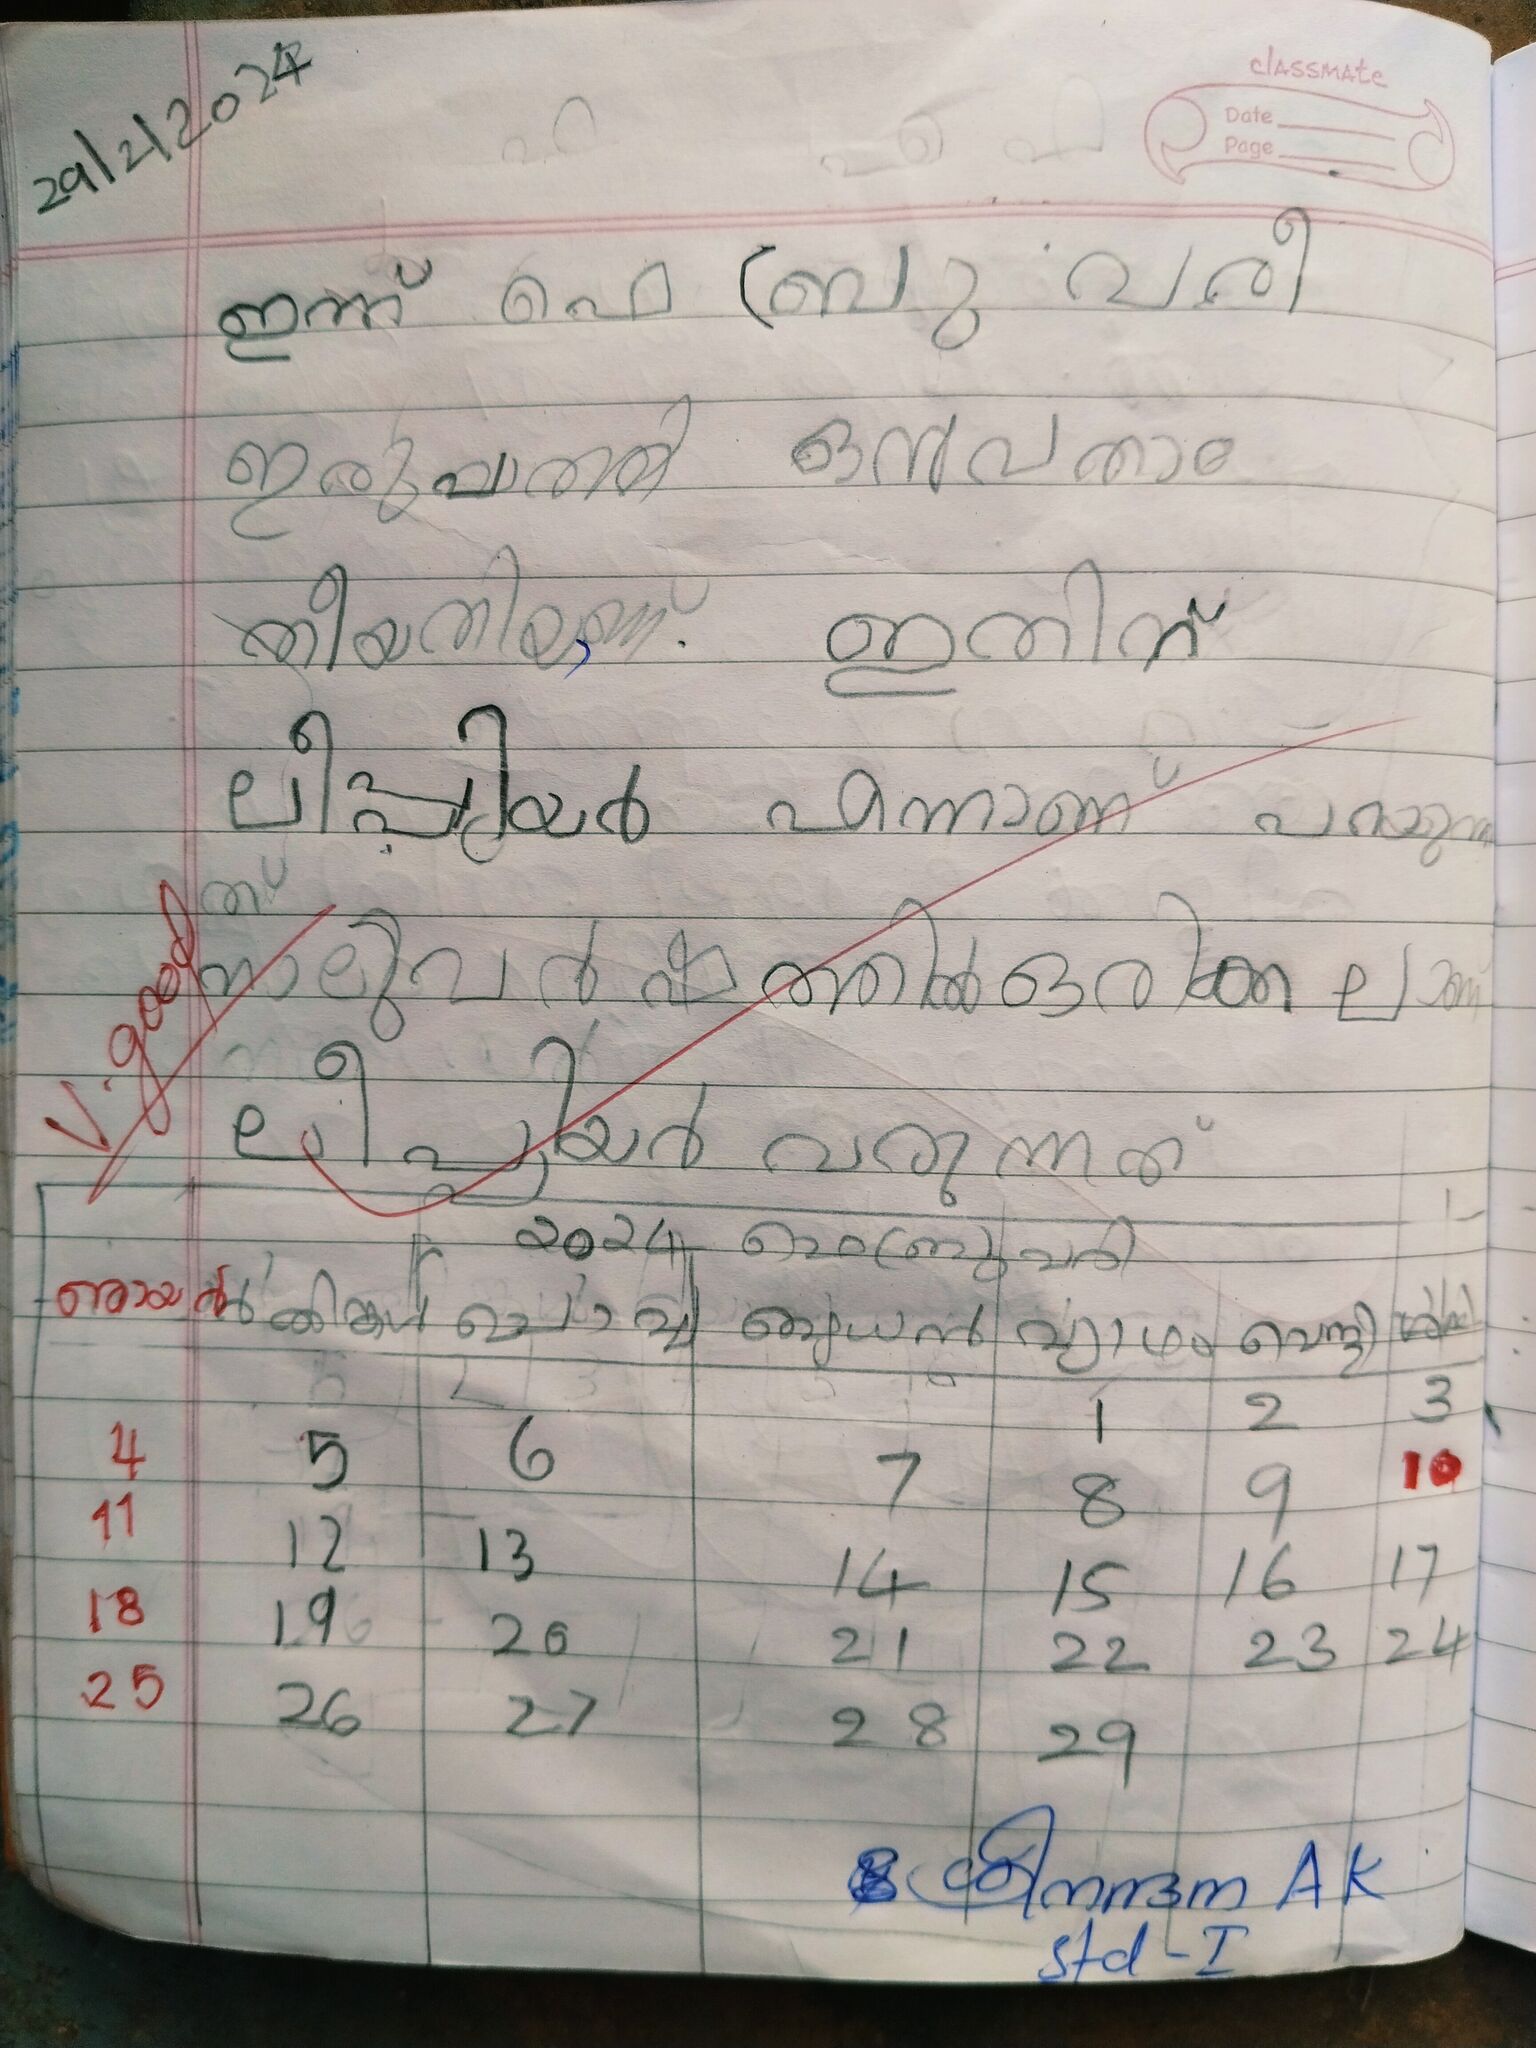 classmate
Date
Page
29/2/2024
ഇന്ന് ഫെ ബ്രു വരി
ഇരുപത്തി ഒൻപതാം
തീയതിയണ്. ഇതിന്
ലീപ്പിയർ എന്നാണ് പറയുന്ന
ത്
നാലുവർഷത്തിൽ ഒരിക്കലാണ്
ലീപ്പിയർ വരുന്നത്
V.good
2024 ഫെബ്രുവരി
ഞായർ തിങ്കൾ ചൊവ്വ ബുധൻ വ്യാഴം വെള്ളി ശനി
1 2 3
4 5 6 7 8 9 10
11 12 13 14 15 16 17
18 19 20 21 22 23 24
25 26 27 28 29
ശ്രീനന്ദന A K
std - I